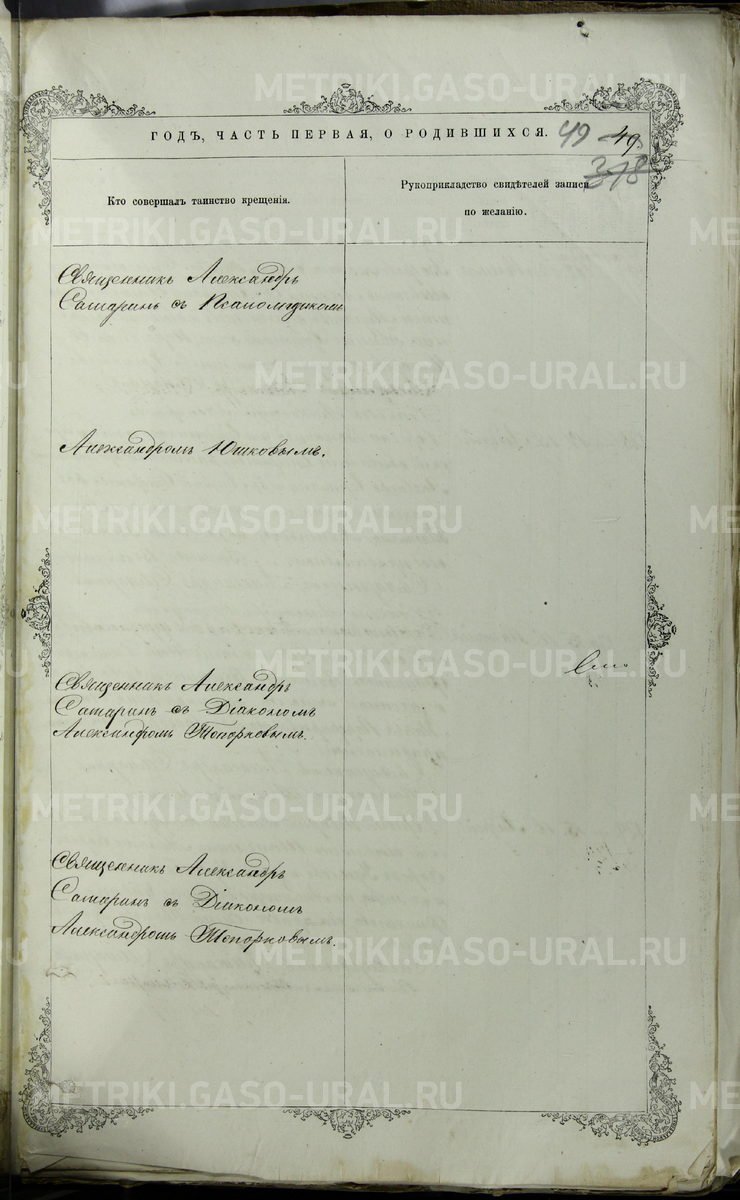 METRIKI.GASO-URAL.RU
ГОДЪ, ЧАСТЬ ПЕРВАЯ, О РОДИВШИХСЯ.
49 49
378
Кто совершалъ таинство крещенія.
Рукоприкладство свидѣтелей записи
по желанію.
Священникъ Александръ
Сатаринъ съ Псаломщикомъ
Александромъ Юшковымъ.
Священникъ Александръ
Сатаринъ съ Діакономъ
Александромъ Топорковымъ.
Священникъ Александръ
Сатаринъ съ Діакономъ
Александромъ Топорковымъ.